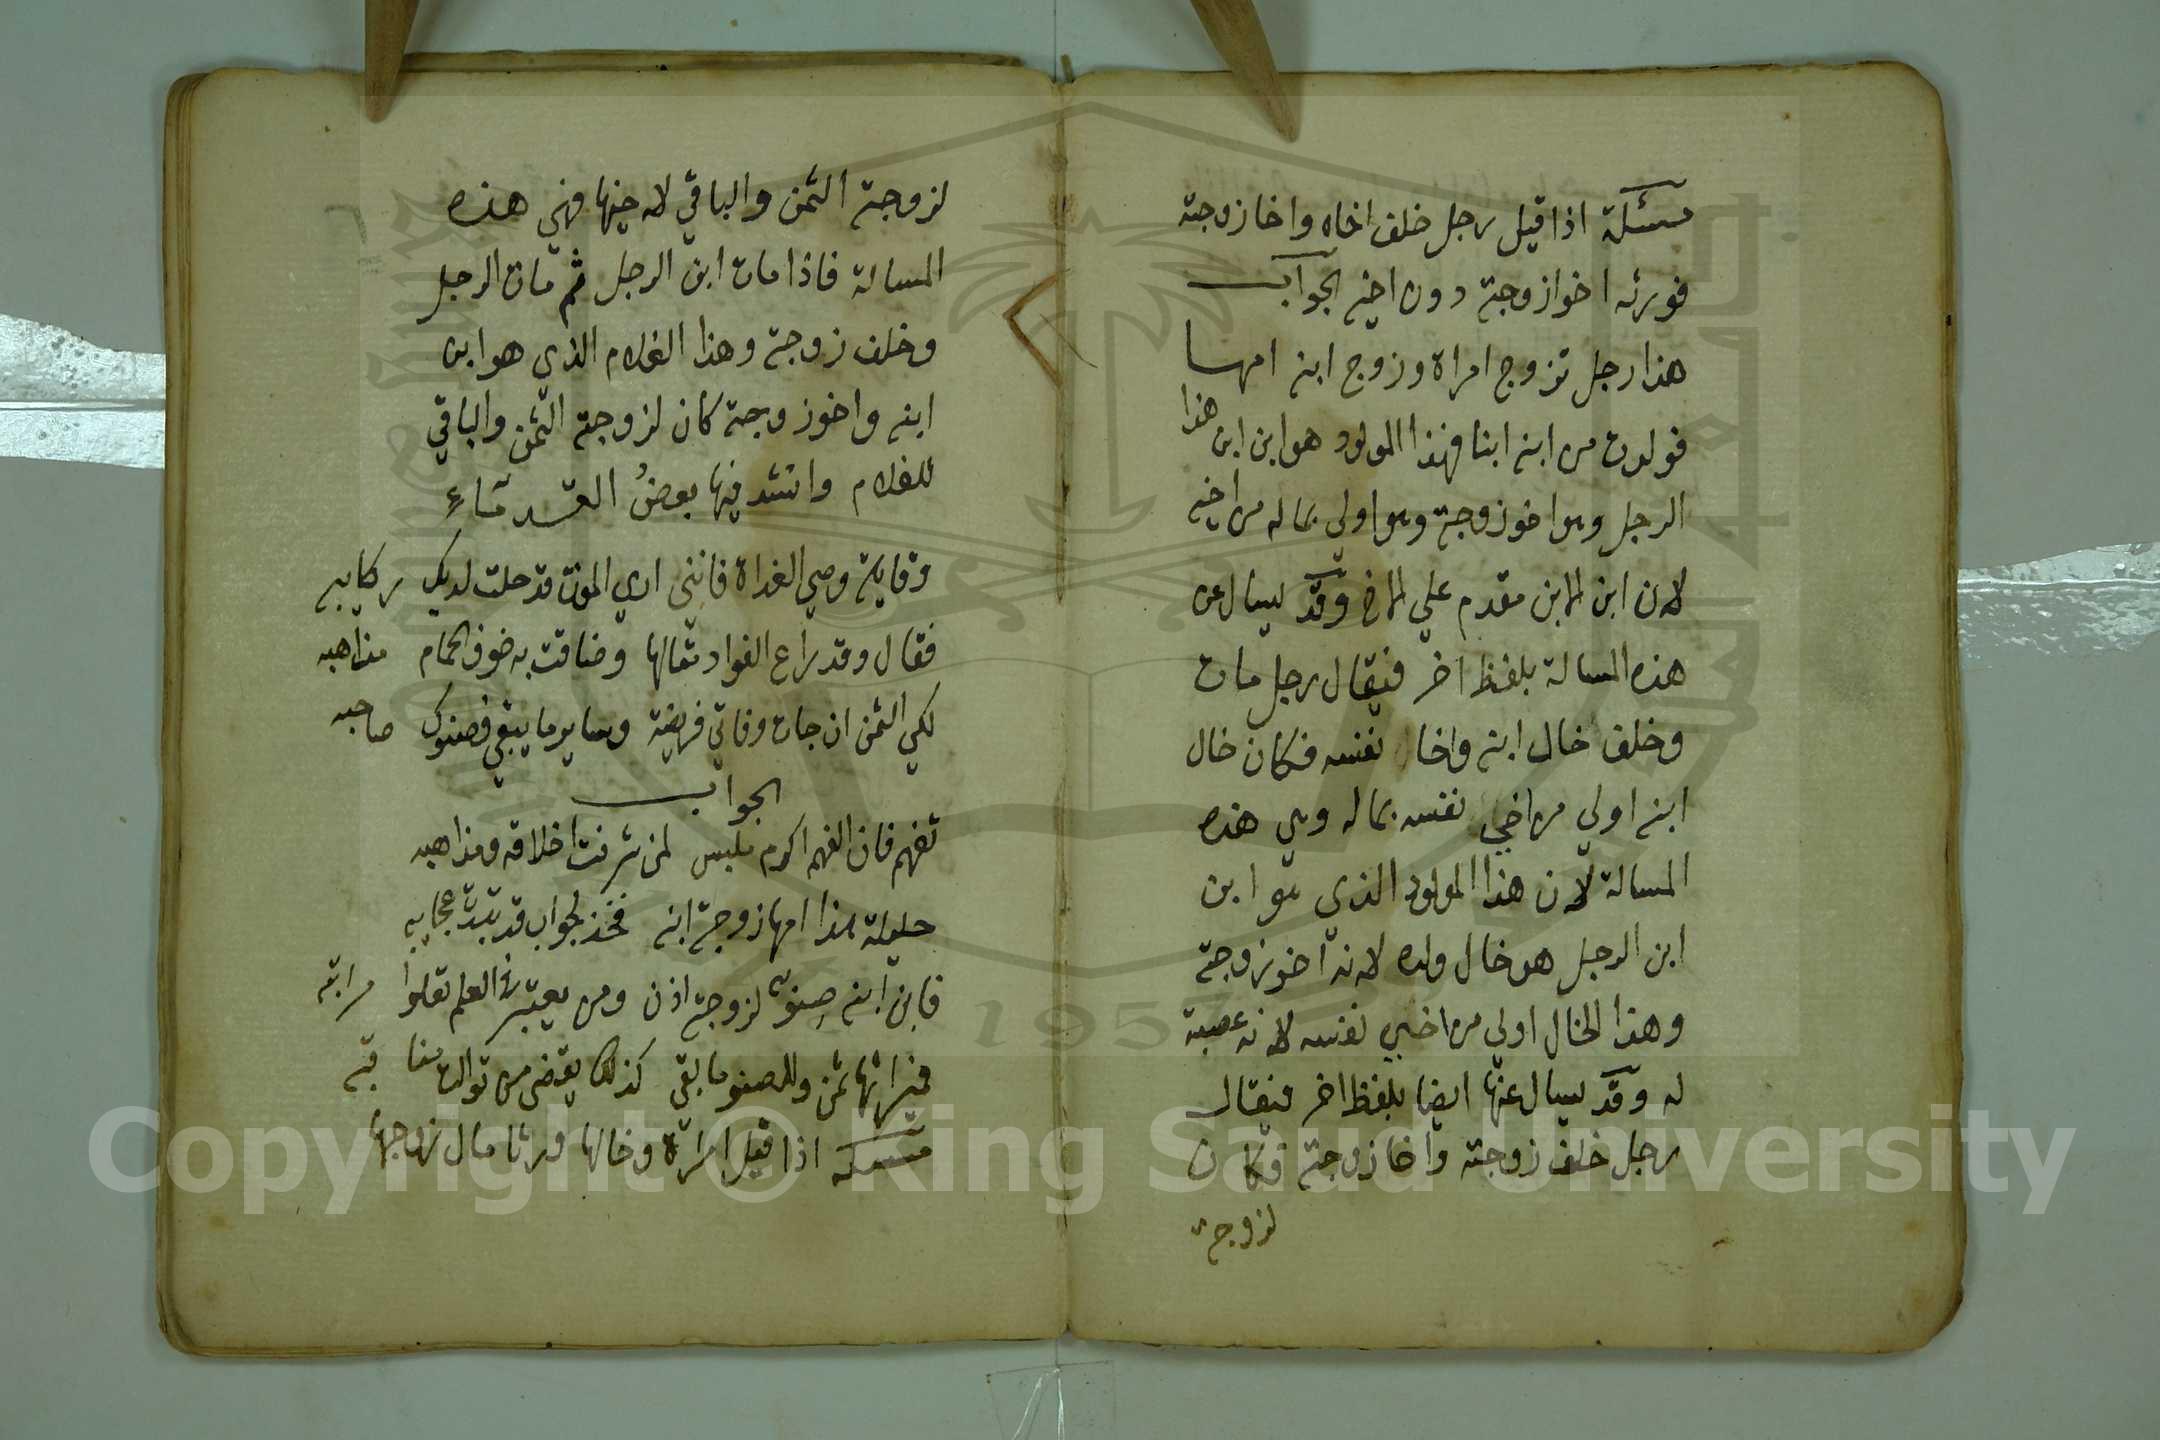 مسئلة اذا قيل رجل خلف اخاه واخا زوجته
فورثه اخوا زوجته دون اخيه الجواب
هذا رجل تزوج امراة وزوج ابنه امها
فولدت من ابنه ابنا فهذا المولود هو ابن ابن هذا
الرجل وهو اخو زوجته وهو اولى بماله من اخيه
لان ابن الابن مقدم علي الاخ وقد يسال عن
هذه المسالة بلفظ اخر فيقال رجل مات
وخلف خال ابنه واخا نفسه فكان خال
ابنه اولي من اخي نفسه بماله وهي هذه
المسالة لان هذا المولود الذي هو ابن
ابن الرجل هو خال ولده لانه اخو زوجته
وهذا الخال اولي من اخي نفسه لانه عصبة
له وقد يسال عنها ايضا بلفظ اخر فيقال
رجل خلف زوجته واخا زوجته فكان
لزوجته
لزوجته الثمن والباقي لاخيها فهي هذه
المسالة فاذا مات ابن الرجل ثم مات الرجل
وخلف زوجته وهذا الغلام الذي هو ابن
ابنه واخو زوجته كان لزوجته الثمن والباقي
للغلام وانشد فيها بعض القدماء
وقايلة وصي الغداة فانني اري الموت قد حلت لديك ركايبه
فقال وقد راع الفواد مقالها وضاقت به خوف الحمام مذاهبه
لكي الثمن ان جات وفاتي فريضة وساير ما يبقي فصنوك صاحبه
الجواب
تفهم فان الفهم اكرم ملبس لمن شرفت اخلاقه ومذاهبه
حليلة هذا امها زوجة ابنه فخذ لجواب قد تبدت عجايبه
فابن ابنه صنو لزوجته اذن ومن يعتبر في العلم تعلوا مراتبه
فميراثها ثمن وللصنو ما بقي كذلك يقضى من توالت مناقبه
مسئلة اذا قيل امراة وخالها ورثا مال زوجها
Copyright © King Saud University
1957